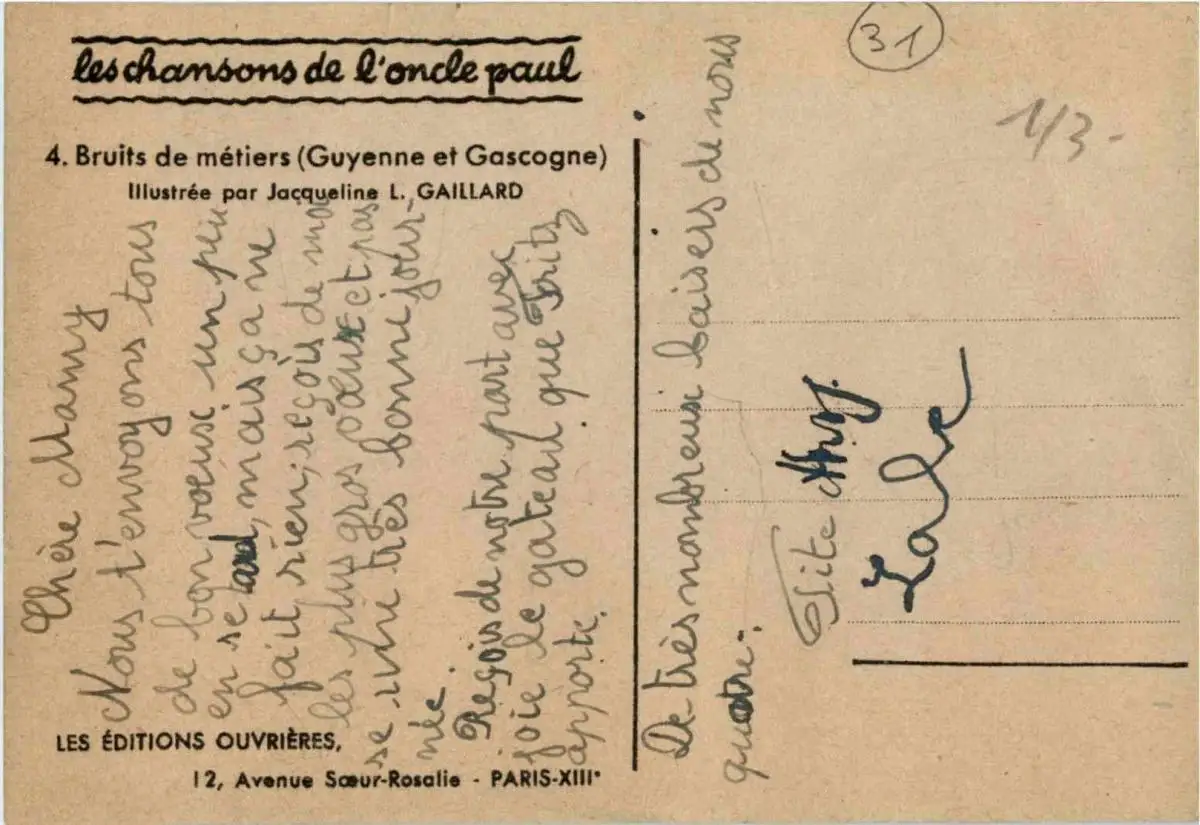 les chansons de l'oncle paul
4. Bruits de métiers (Guyenne et Gascogne)
Illustrée par Jacqueline L. GAILLARD
Chère Mamy
Nous t'envoyons tous
de bon voeuse un peu
en se tard, mais ça ne
fait rien, reçois de moi
les plus gros et pas
se une très bonne jour-
née.
Reçois de notre part avec
joie le gateau que Frits
apporte.
LES ÉDITIONS OUVRIÈRES,
12, Avenue Sœur-Rosalie - PARIS-XIII°
31
1/3-
De très nombreux baisers de nous
quatre.